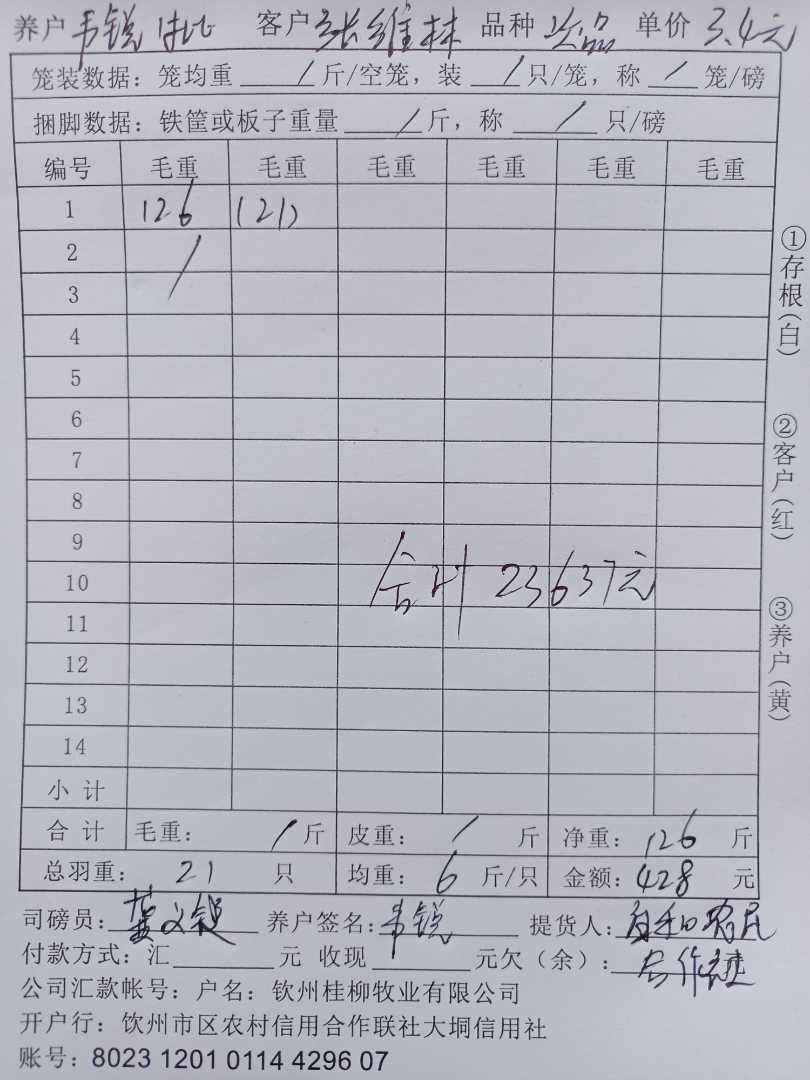 养户 韦锐 客户 张维林 品种 次品 单价 3.4元
笼装数据：笼均重 / 斤/空笼，装 / 只/笼，称 / 笼/磅
捆脚数据：铁筐或板子重量 / 斤，称 / 只/磅
编号 毛重 毛重 毛重 毛重 毛重 毛重
1 126 (21)
2 /
3
4
5
6
7
8
9
10 合计 23637元
11
12
13
14
小 计
合 计 毛重： / 斤 皮重： / 斤 净重：126 斤
总羽重： 21 只 均重： 6 斤/只 金额：428 元
司磅员： 养户签名：韦锐 提货人：
付款方式：汇 元 收现 元欠（余）：
公司汇款帐号：户名：钦州桂柳牧业有限公司
开户行：饮州市区农村信用合作联社大垌信用社
账号：8023 1201 0114 4296 07
①存根(白)
②客户(红)
③养户(黄)